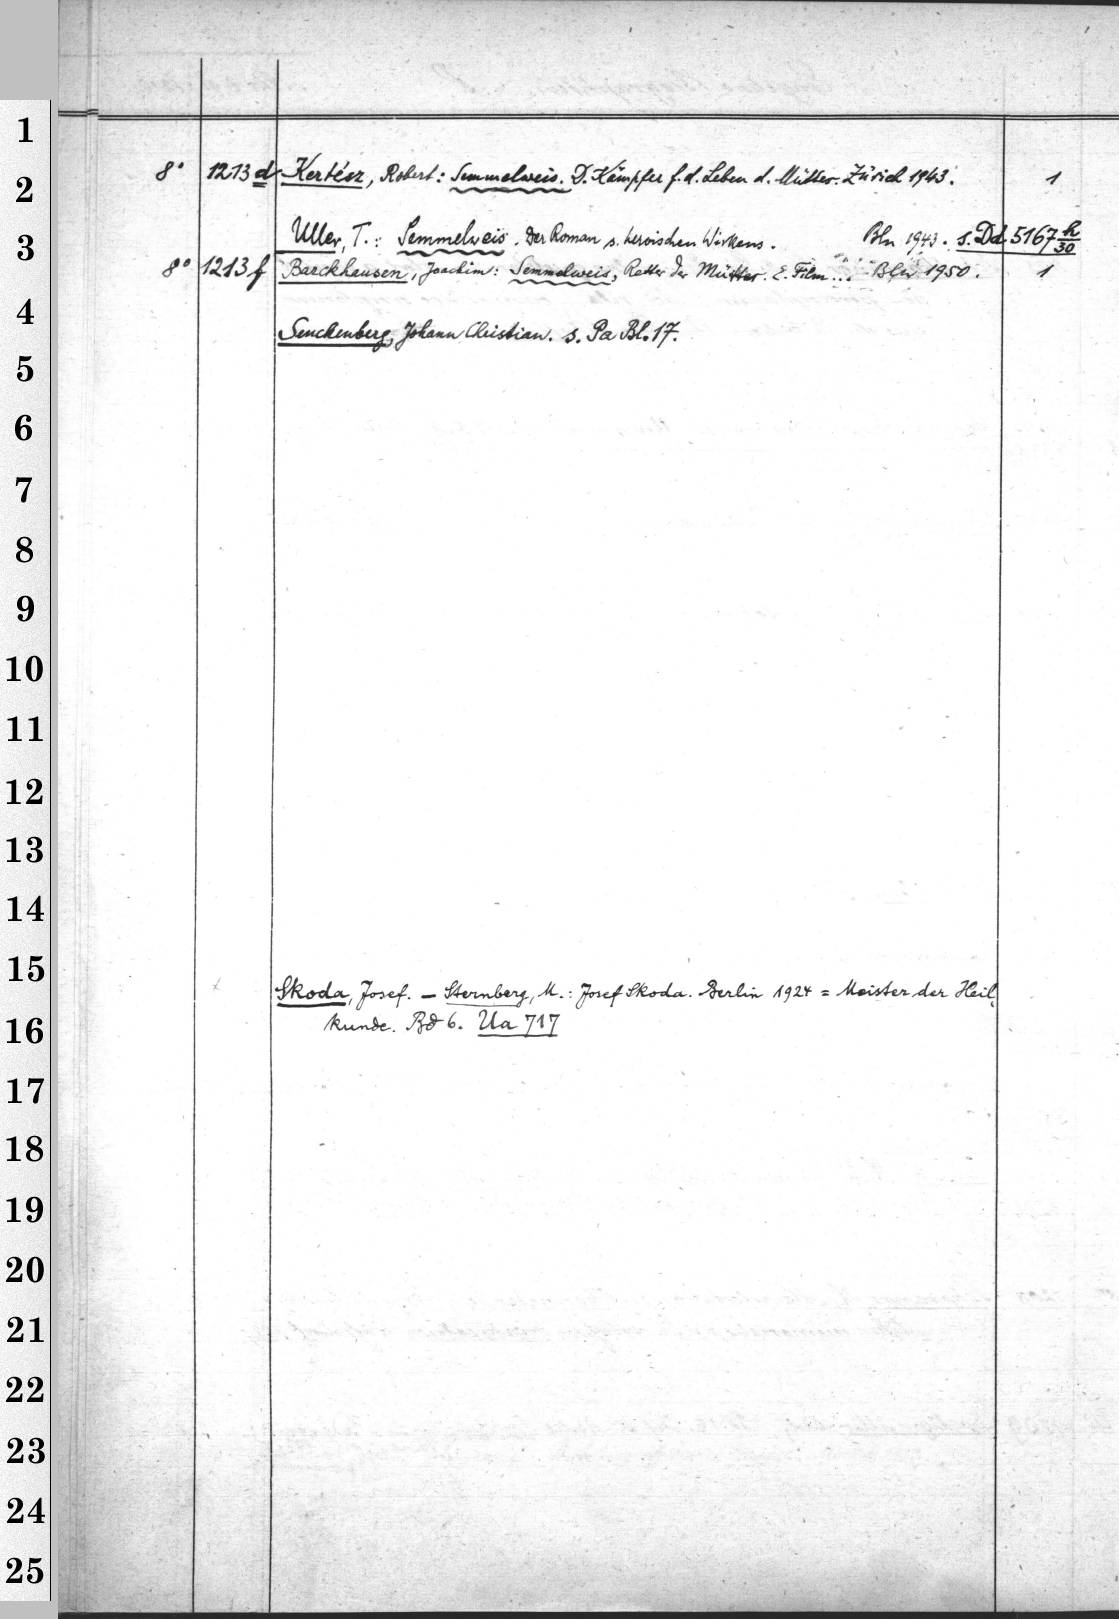 1
8° 1213 d Kertész, Robert: Semmelweis. D. Kämpfer f. d. Leben d. Mütter. Zürich 1943. 1
2
Uller, T.: Semmelweis. Der Roman s. heroischen Wirkens. Bln 1943. s. Dd 5167 h/30
3
8° 1213 f Barckhausen, Joachim: Semmelweis, Retter der Mütter. E. Film... Bln 1950. 1
4
Senckenberg, Johann Christian. s. Pa Bl. 17.
5
6
7
8
9
10
11
12
13
14
15
Skoda, Josef. – Sternberg, M.: Josef Skoda. Berlin 1924 = Meister der Heil-
16
kunde. Bd 6. Ua 717
17
18
19
20
21
22
23
24
25